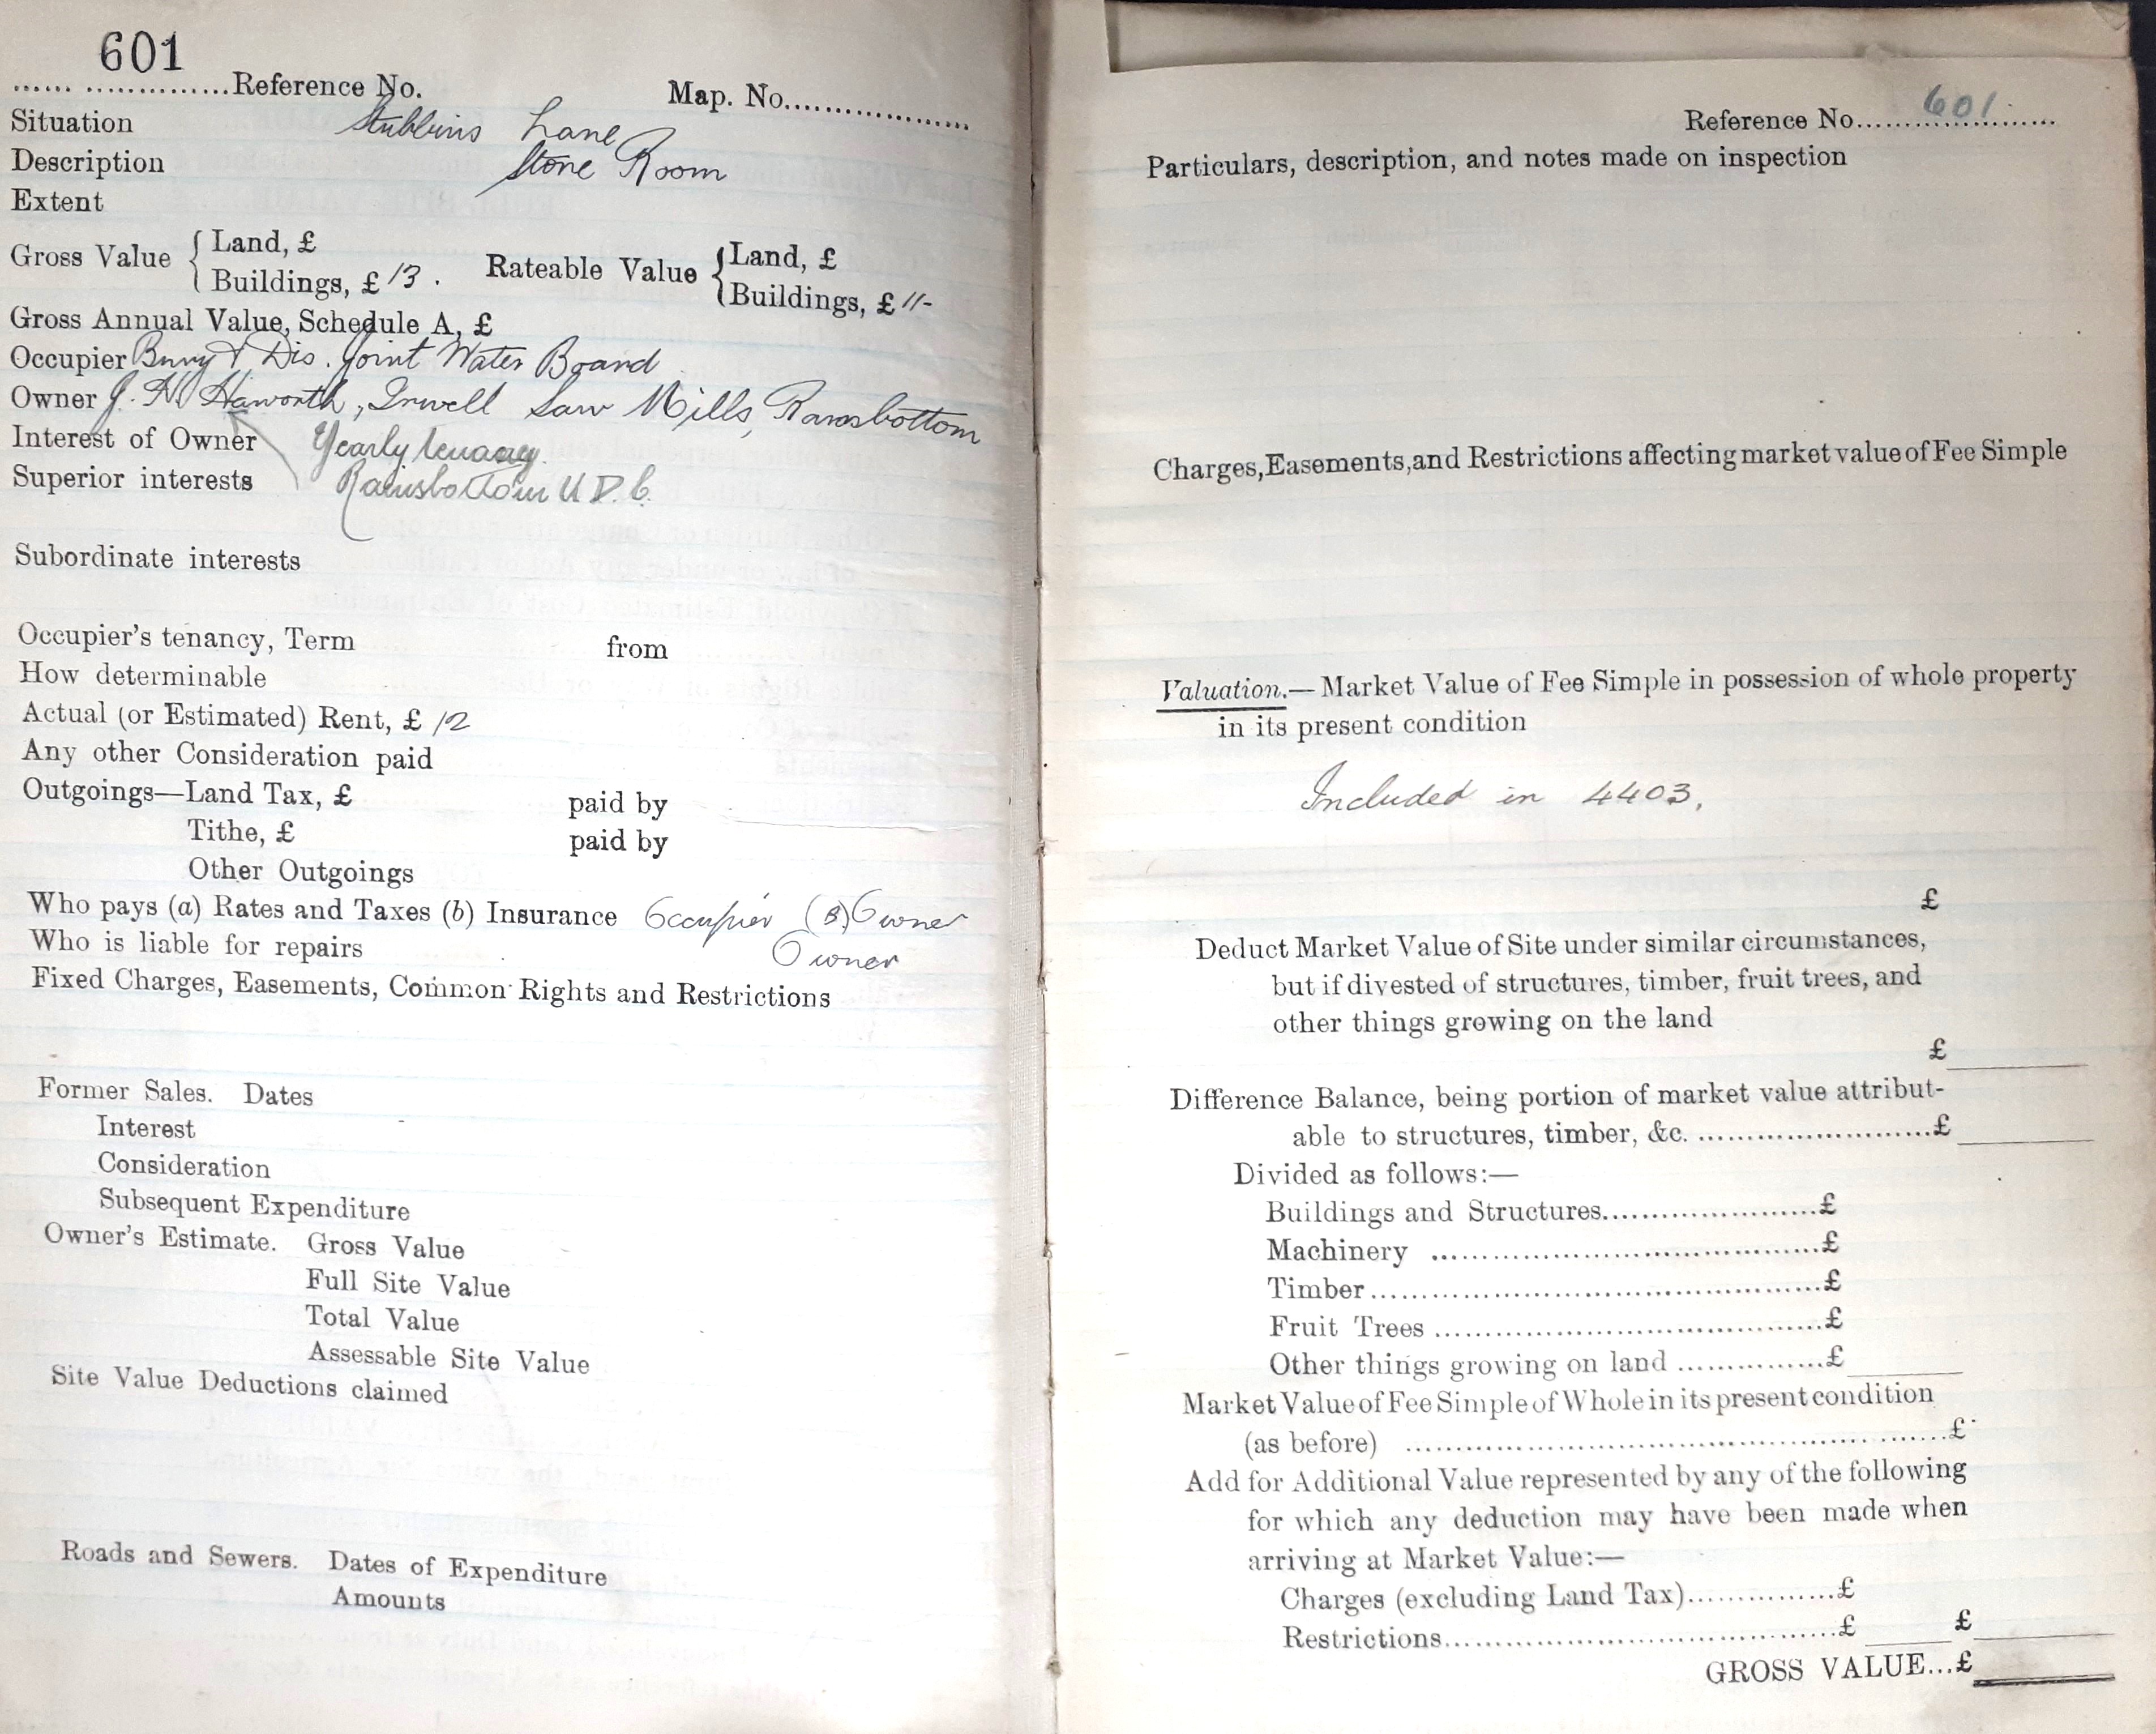 601
...... ..............Reference No. Map. No....................
Situation Stubbins Lane
Description Store Room
Extent
Gross Value { Land, £
Buildings, £ 13 . Rateable Value { Land, £
Buildings, £ 11-
Gross Annual Value, Schedule A, £
Occupier Bury & Dis. Joint Water Board
Owner J. H. Haworth, Irwell Saw Mills, Ramsbottom
Interest of Owner Yearly tenancy
Superior interests Ramsbottom U D. C.
Subordinate interests
Occupier's tenancy, Term from
How determinable
Actual (or Estimated) Rent, £ 12
Any other Consideration paid
Outgoings—Land Tax, £ paid by
Tithe, £ paid by
Other Outgoings
Who pays (a) Rates and Taxes (b) Insurance Occupier (B) Owner
Who is liable for repairs Owner
Fixed Charges, Easements, Common Rights and Restrictions
Former Sales. Dates
Interest
Consideration
Subsequent Expenditure
Owner's Estimate. Gross Value
Full Site Value
Total Value
Assessable Site Value
Site Value Deductions claimed
Roads and Sewers. Dates of Expenditure
Amounts
Reference No....... 601 .......
Particulars, description, and notes made on inspection
Charges, Easements, and Restrictions affecting market value of Fee Simple
Valuation.— Market Value of Fee Simple in possession of whole property
in its present condition
Included in 4403.
£
Deduct Market Value of Site under similar circumstances,
but if divested of structures, timber, fruit trees, and
other things growing on the land
£
Difference Balance, being portion of market value attribut-
able to structures, timber, &c. ............................£
Divided as follows:—
Buildings and Structures.........................£
Machinery .............................................£
Timber....................................................£
Fruit Trees .............................................£
Other things growing on land .................£
Market Value of Fee Simple of Whole in its present condition
(as before) ...............................................................£
Add for Additional Value represented by any of the following
for which any deduction may have been made when
arriving at Market Value:—
Charges (excluding Land Tax).................£
Restrictions.............................................£ £
GROSS VALUE...£